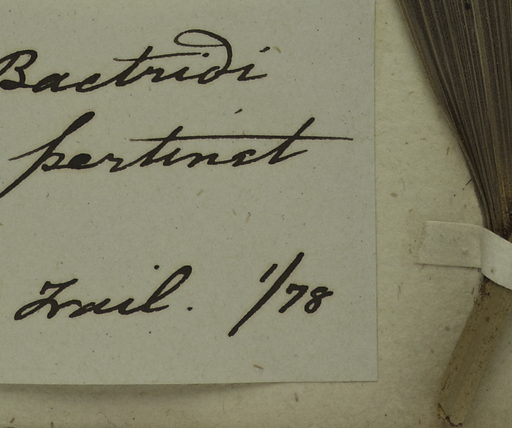 Bactridi
pertinet
Trail. 1/78